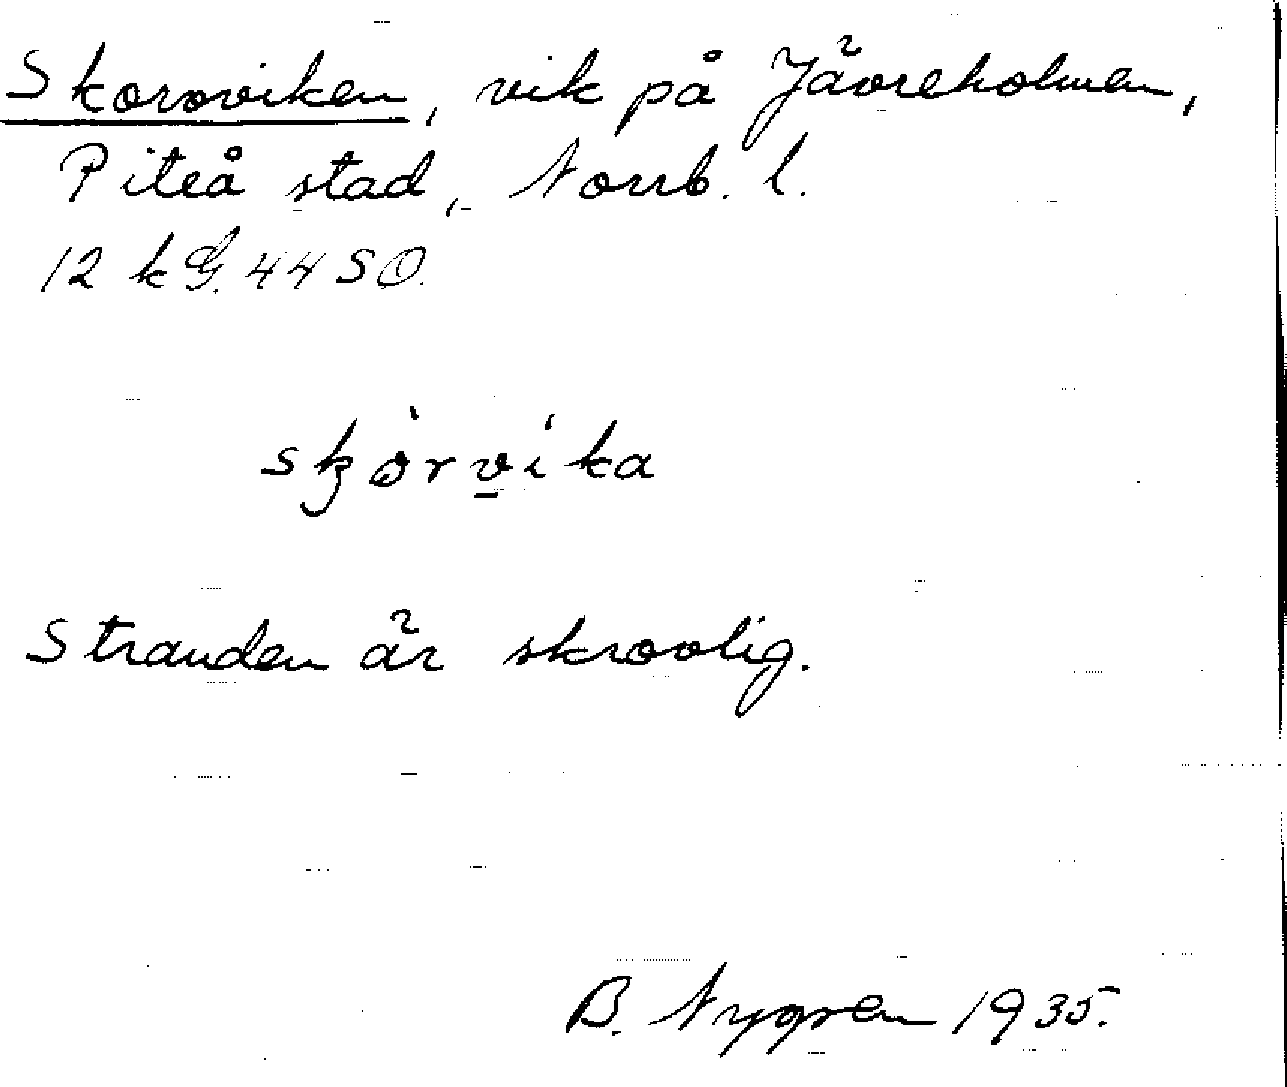 Skorvviken, vik på Jävreholmen,
Piteå stad, Norrb. l.
12 k G. 44 SO.
skòrvíka
Stranden är skrovlig.
B. Nygren 1935.